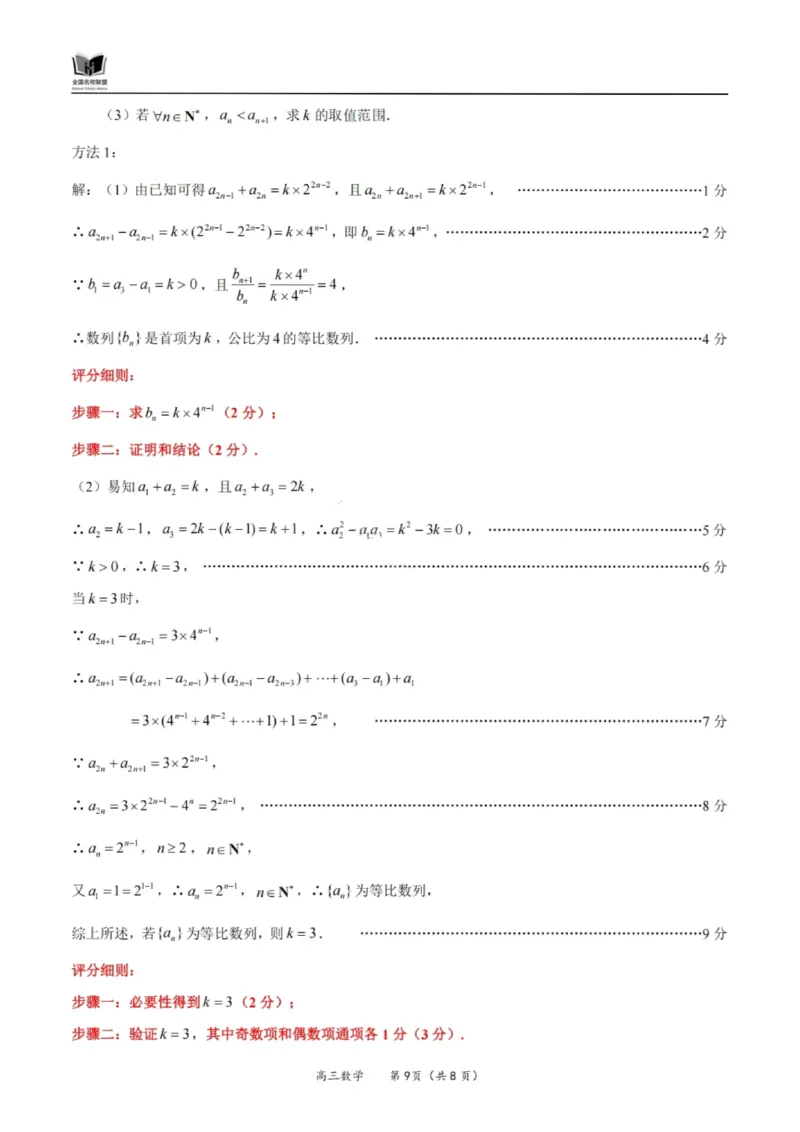 全国名校联盟
（3）若∀n∈N*，a_n<a_{n+1}，求k的取值范围.
方法1：
解：（1）由已知可得a_{2n-1}+a_{2n}=k×2^{2n-2}，且a_{2n}+a_{2n+1}=k×2^{2n-1}，……………………………………1分
∴a_{2n+1}-a_{2n-1}=k×(2^{2n-1}-2^{2n-2})=k×4^{n-1}，即b_n=k×4^{n-1}，……………………………………2分
∵b_1=a_3-a_1=k>0，且b_{n+1}/b_n=(k×4^n)/(k×4^{n-1})=4，
∴数列{b_n}是首项为k，公比为4的等比数列．……………………………………4分
评分细则：
步骤一：求b_n=k×4^{n-1}（2分）；
步骤二：证明和结论（2分）．
（2）易知a_1+a_2=k，且a_2+a_3=2k，
∴a_2=k-1，a_3=2k-(k-1)=k+1，∴a_2^2-a_1a_3=k^2-3k=0，……………………………………5分
∵k>0，∴k=3，……………………………………6分
当k=3时，
∵a_{2n+1}-a_{2n-1}=3×4^{n-1}，
∴a_{2n+1}=(a_{2n+1}-a_{2n-1})+(a_{2n-1}-a_{2n-3})+⋯+(a_3-a_1)+a_1
=3×(4^{n-1}+4^{n-2}+⋯+1)+1=2^{2n}，……………………………………7分
∵a_{2n}+a_{2n+1}=3×2^{2n-1}，
∴a_{2n}=3×2^{2n-1}-4^n=2^{2n-1}，……………………………………8分
∴a_n=2^{n-1}，n≥2，n∈N*，
又a_1=1=2^{1-1}，∴a_n=2^{n-1}，n∈N*，∴{a_n}为等比数列，
综上所述，若{a_n}为等比数列，则k=3．……………………………………9分
评分细则：
步骤一：必要性得到k=3（2分）；
步骤二：验证k=3，其中奇数项和偶数项通项各1分（3分）．
高三数学 第9页（共8页）